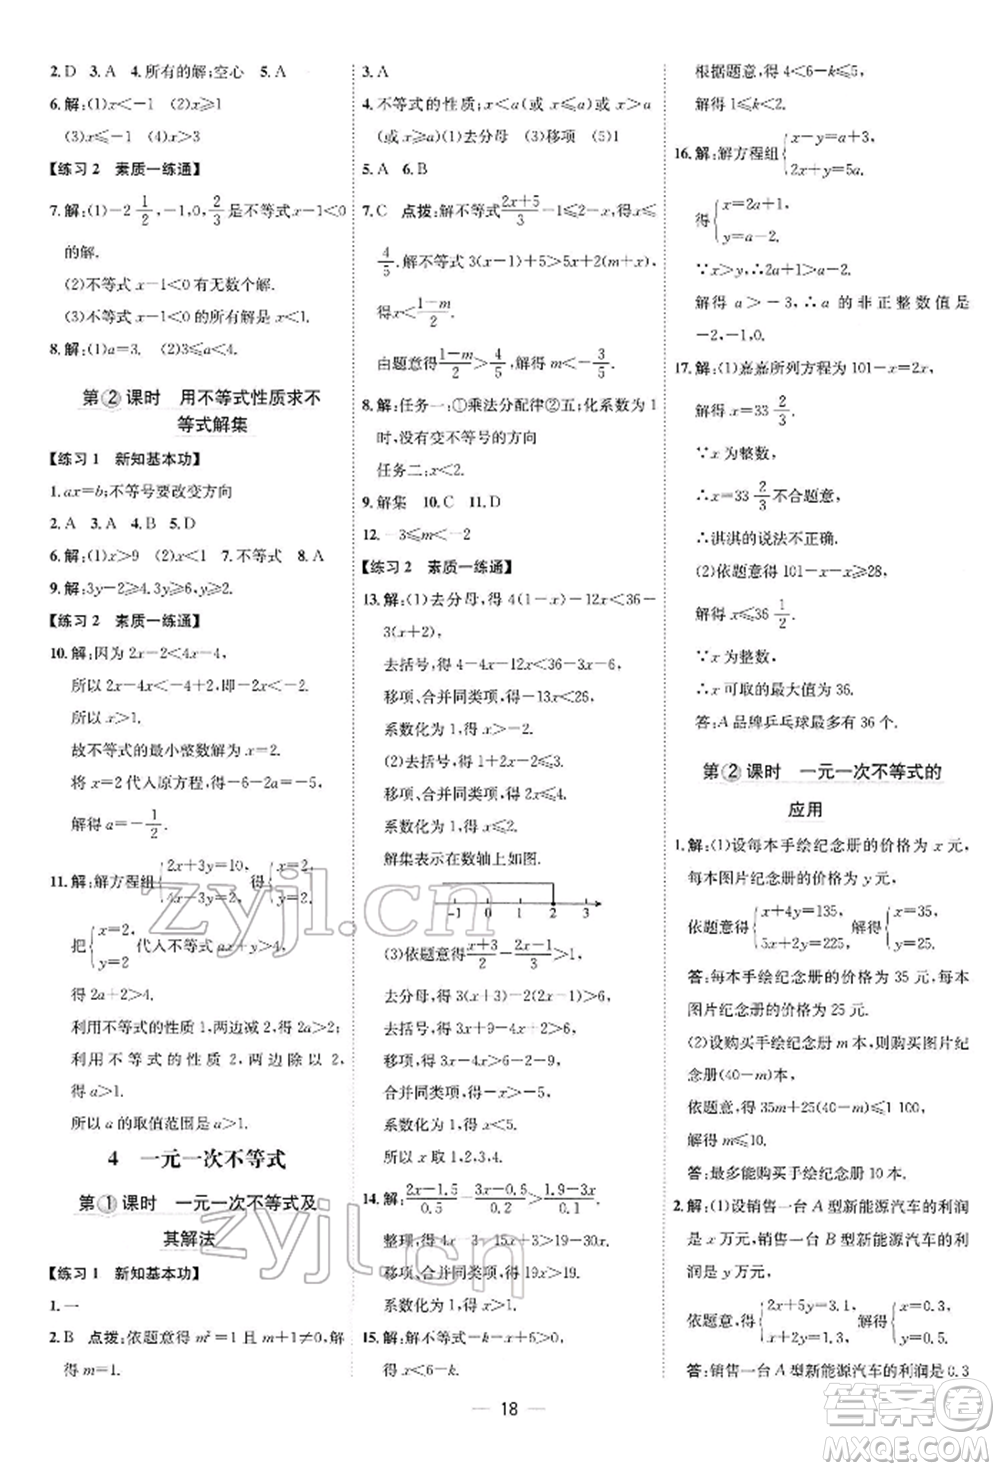 2. D 3. A 4. 所有的解;空心 5. A
6. 解:(1)x<-1 (2)x≥1
(3)x≤-1 (4)x>3
【练习2 素质一练通】
7. 解:(1)-2 1/2,-1,0,2/3是不等式x-1<0
的解.
(2)不等式x-1<0有无数个解.
(3)不等式x-1<0的所有解是x<1.
8. 解:(1)a=3. (2)3≤a<4.
第②课时 用不等式性质求不
等式解集
【练习1 新知基本功】
1. ax=b;不等号要改变方向
2. A 3. A 4. B 5. D
6. 解:(1)x>9 (2)x<0 7. 不等式 8. A
9. 解:3y-2≥4. 3y≥6, y≥2.
【练习2 素质一练通】
10. 解:因为2x-2<4x-4,
所以2x-4x<-4+2,即-2x<-2.
所以x>1.
故不等式的最小整数解为x=2.
将x=2代入原方程,得4-2a=5.
解得a=-1/2.
11. 解:解方程组{2x+3y=10, 4x-3y=2 得{x=2, y=2.
把{x=2, y=2代入不等式ax+y>4,
得2a+2>4;
利用不等式的性质1,两边减2得2a>2;
利用不等式的性质2,两边除以2,
得a>1.
所以a的取值范围是a>1.
4 一元一次不等式
第①课时 一元一次不等式及
其解法
【练习1 新知基本功】
1. 一
2. B 点拨:依题意得m²=1且m+1≠0,解
得m=1.
3. A
4. 不等式的性质;x<a(或x≤a或x>a
(或x≥a)(1)去分母 (3)移项 (5)1
5. A 6. B
7. C 点拨:解不等式(2x+5)/3-1≤2-x,得x≤
4/5.解不等式3(x-1)+5>5x+2(m+x),
得x<(1-m)/2.
由题意得(1-m)/2>4/5,解得m<-3/5.
8. 解:任务一:①乘法分配律②五;化系数为1
时,没有变不等号的方向
任务二:x<2.
9. 解集 10. C 11. D
12. -3≤m<-2
【练习2 素质一练通】
13. 解:(1)去分母,得4(1-x)-12x<36-
3(x+2),
去括号,得4-4x-12x<36-3x-6,
移项、合并同类项,得-13x<26,
系数化为1,得x>-2.
解集表示在数轴上如图.
-1 0 1 2 3
(3)依题意得(x+3)/2-(2x-1)/3>1,
去分母,得3(x+3)-2(2x-1)>6,
移项,得3x-4x>6-2-9,
合并同类项,得-x>-5,
系数化为1,得x<5.
所以x取1,2,3,4.
14. 解:(2x-1.5)/0.5-(3x-0.5)/0.2>(1.9-3x)/0.1,
整理,得4x-3-15x+2.5>19-30x,
移项、合并同类项,得19x>19.
系数化为1,得x>1.
15. 解:解不等式-k-x+6>0,
得x<6-k.
根据题意,得4<6-k≤5,
解得1≤k<2.
16. 解:解方程组{x-y=a+3, 2x+y=5a.
得{x=2a+1, y=a-2.
∵x>y,∴2a+1>a-2.
解得a>-3,∴a的非正整数值是
-2,-1,0.
17. 解:(1)嘉嘉所列方程为101-x=2x,
解得x=33 2/3.
∵x为整数,
∴x=33 2/3不合题意,
∴淇淇的说法不正确.
(2)依题意得101-x-x≥28,
解得x≤36 1/2.
∵x为整数,
∴x可取的最大值为36.
答:A品牌乒乓球最多有36个.
第②课时 一元一次不等式的
应用
1. 解:(1)设每本手绘纪念册的价格为x元,
每本图片纪念册的价格为y元.
依题意得{x+4y=135, 5x+2y=225,解得{x=35, y=25.
答:每本手绘纪念册的价格为35元,每本
图片纪念册的价格为25元.
(2)设购买手绘纪念册m本,则购买图片纪
念册(40-m)本,
依题意,得35m+25(40-m)≤1 100,
解得m≤10.
答:最多能购买手绘纪念册10本.
2. 解:(1)设销售一台A型新能源汽车的利润
是x万元,销售一台B型新能源汽车的利
润是y万元,
依题意,得{2x+5y=3.1, x+2y=1.3,解得{x=0.3, y=0.5.
答:销售一台A型新能源汽车的利润是0.3
18
zyjl.cn
zyjl.cn
答案圈
MXQE.COM